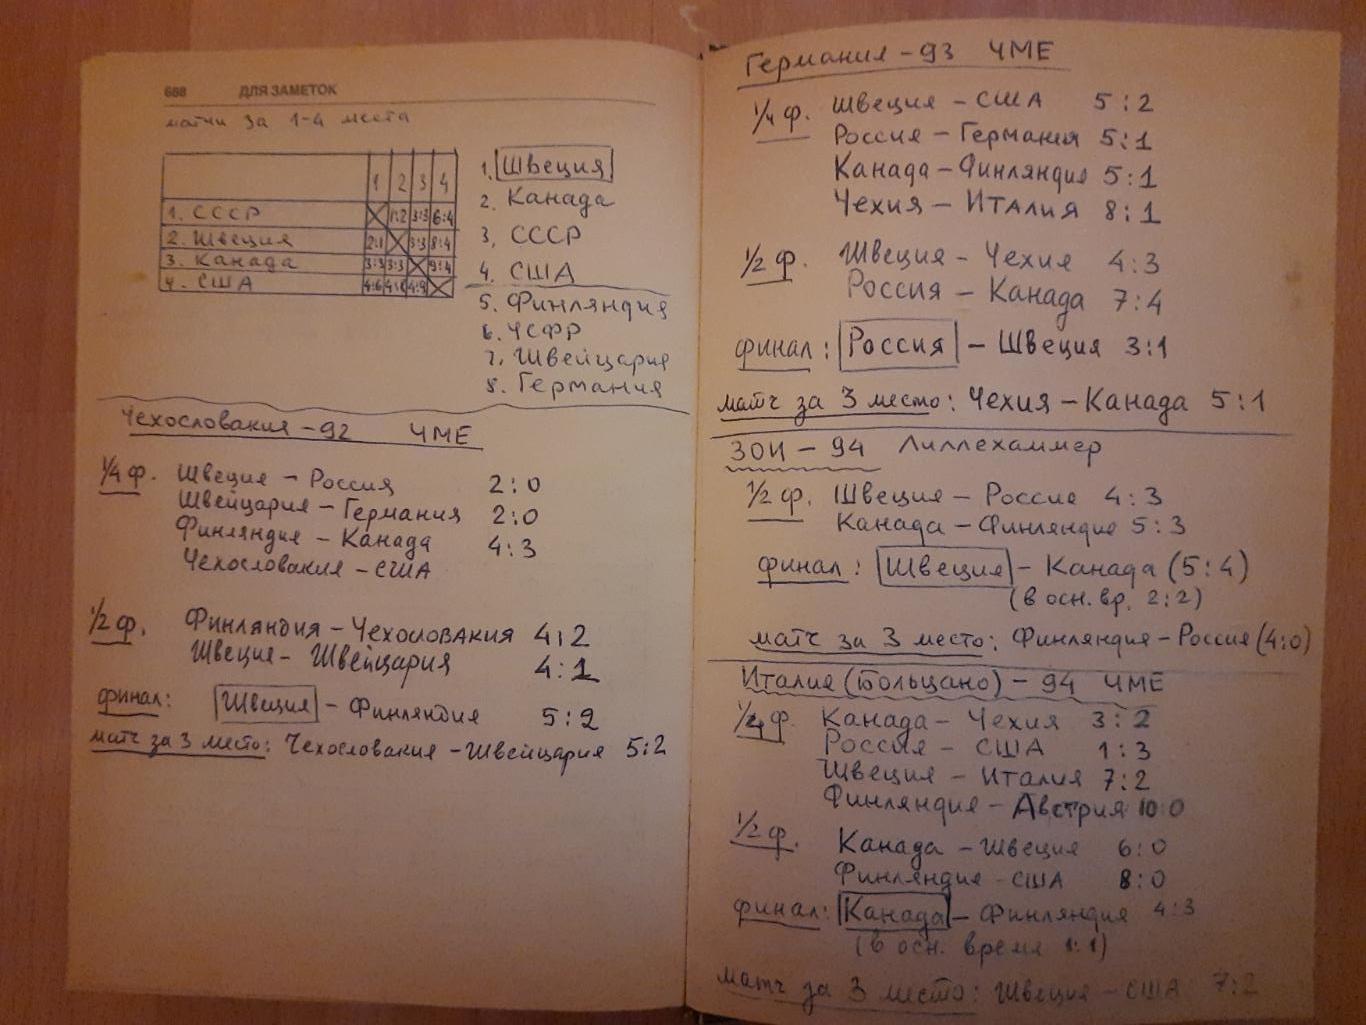 688 ДЛЯ ЗАМЕТОК
матчи за 1-4 места
1 2 3 4
1. СССР 1:2 3:3 6:4
2. Швеция 2:1 3:3 8:4
3. Канада 3:3 3:3 9:4
4. США 4:6 4:8 4:9
1. Швеция
2. Канада
3. СССР
4. США
5. Финляндия
6. ЧСФР
7. Швейцария
8. Германия
Чехословакия -92 ЧМЕ
1/4 ф. Швеция - Россия 2:0
Швейцария - Германия 2:0
Финляндия - Канада 4:3
Чехословакия - США
1/2 ф. Финляндия - Чехословакия 4:2
Швеция - Швейцария 4:1
финал: Швеция - Финляндия 5:2
матч за 3 место: Чехословакия - Швейцария 5:2
Германия - 93 ЧМЕ
1/4 ф. Швеция - США 5:2
Россия - Германия 5:1
Канада - Финляндия 5:1
Чехия - Италия 8:1
1/2 ф. Швеция - Чехия 4:3
Россия - Канада 7:4
финал: Россия - Швеция 3:1
матч за 3 место: Чехия - Канада 5:1
ЗОИ - 94 Лиллехаммер
1/2 ф. Швеция - Россия 4:3
Канада - Финляндия 5:3
финал: Швеция - Канада (5:4)
(в осн. вр. 2:2)
матч за 3 место: Финляндия - Россия (4:0)
Италия (Больцано) - 94 ЧМЕ
1/4 ф. Канада - Чехия 3:2
Россия - США 1:3
Швеция - Италия 7:2
Финляндия - Австрия 10:0
1/2 ф. Канада - Швеция 6:0
Финляндия - США 8:0
финал: Канада - Финляндия 4:3
(в осн. время 1:1)
матч за 3 место: Швеция - США 7:2